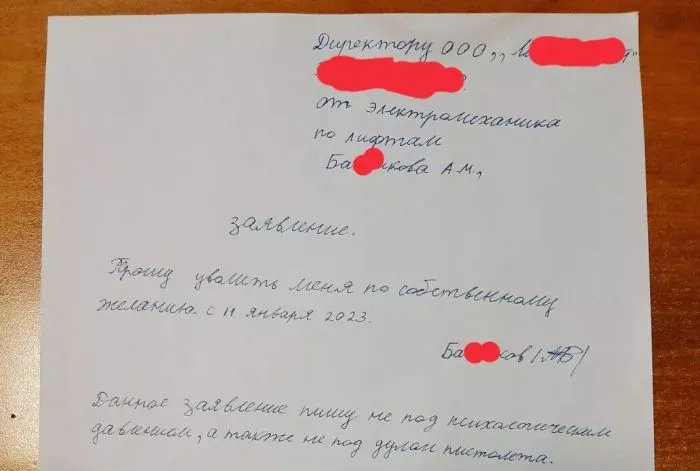 Директору ООО „
от электромеханика
по лифтам
А.М.,
заявление.
Прошу уволить меня по собственному
желанию с 11 января 2023.
Данное заявление пишу не под психологическим
давлением, а также не под дулом пистолета.